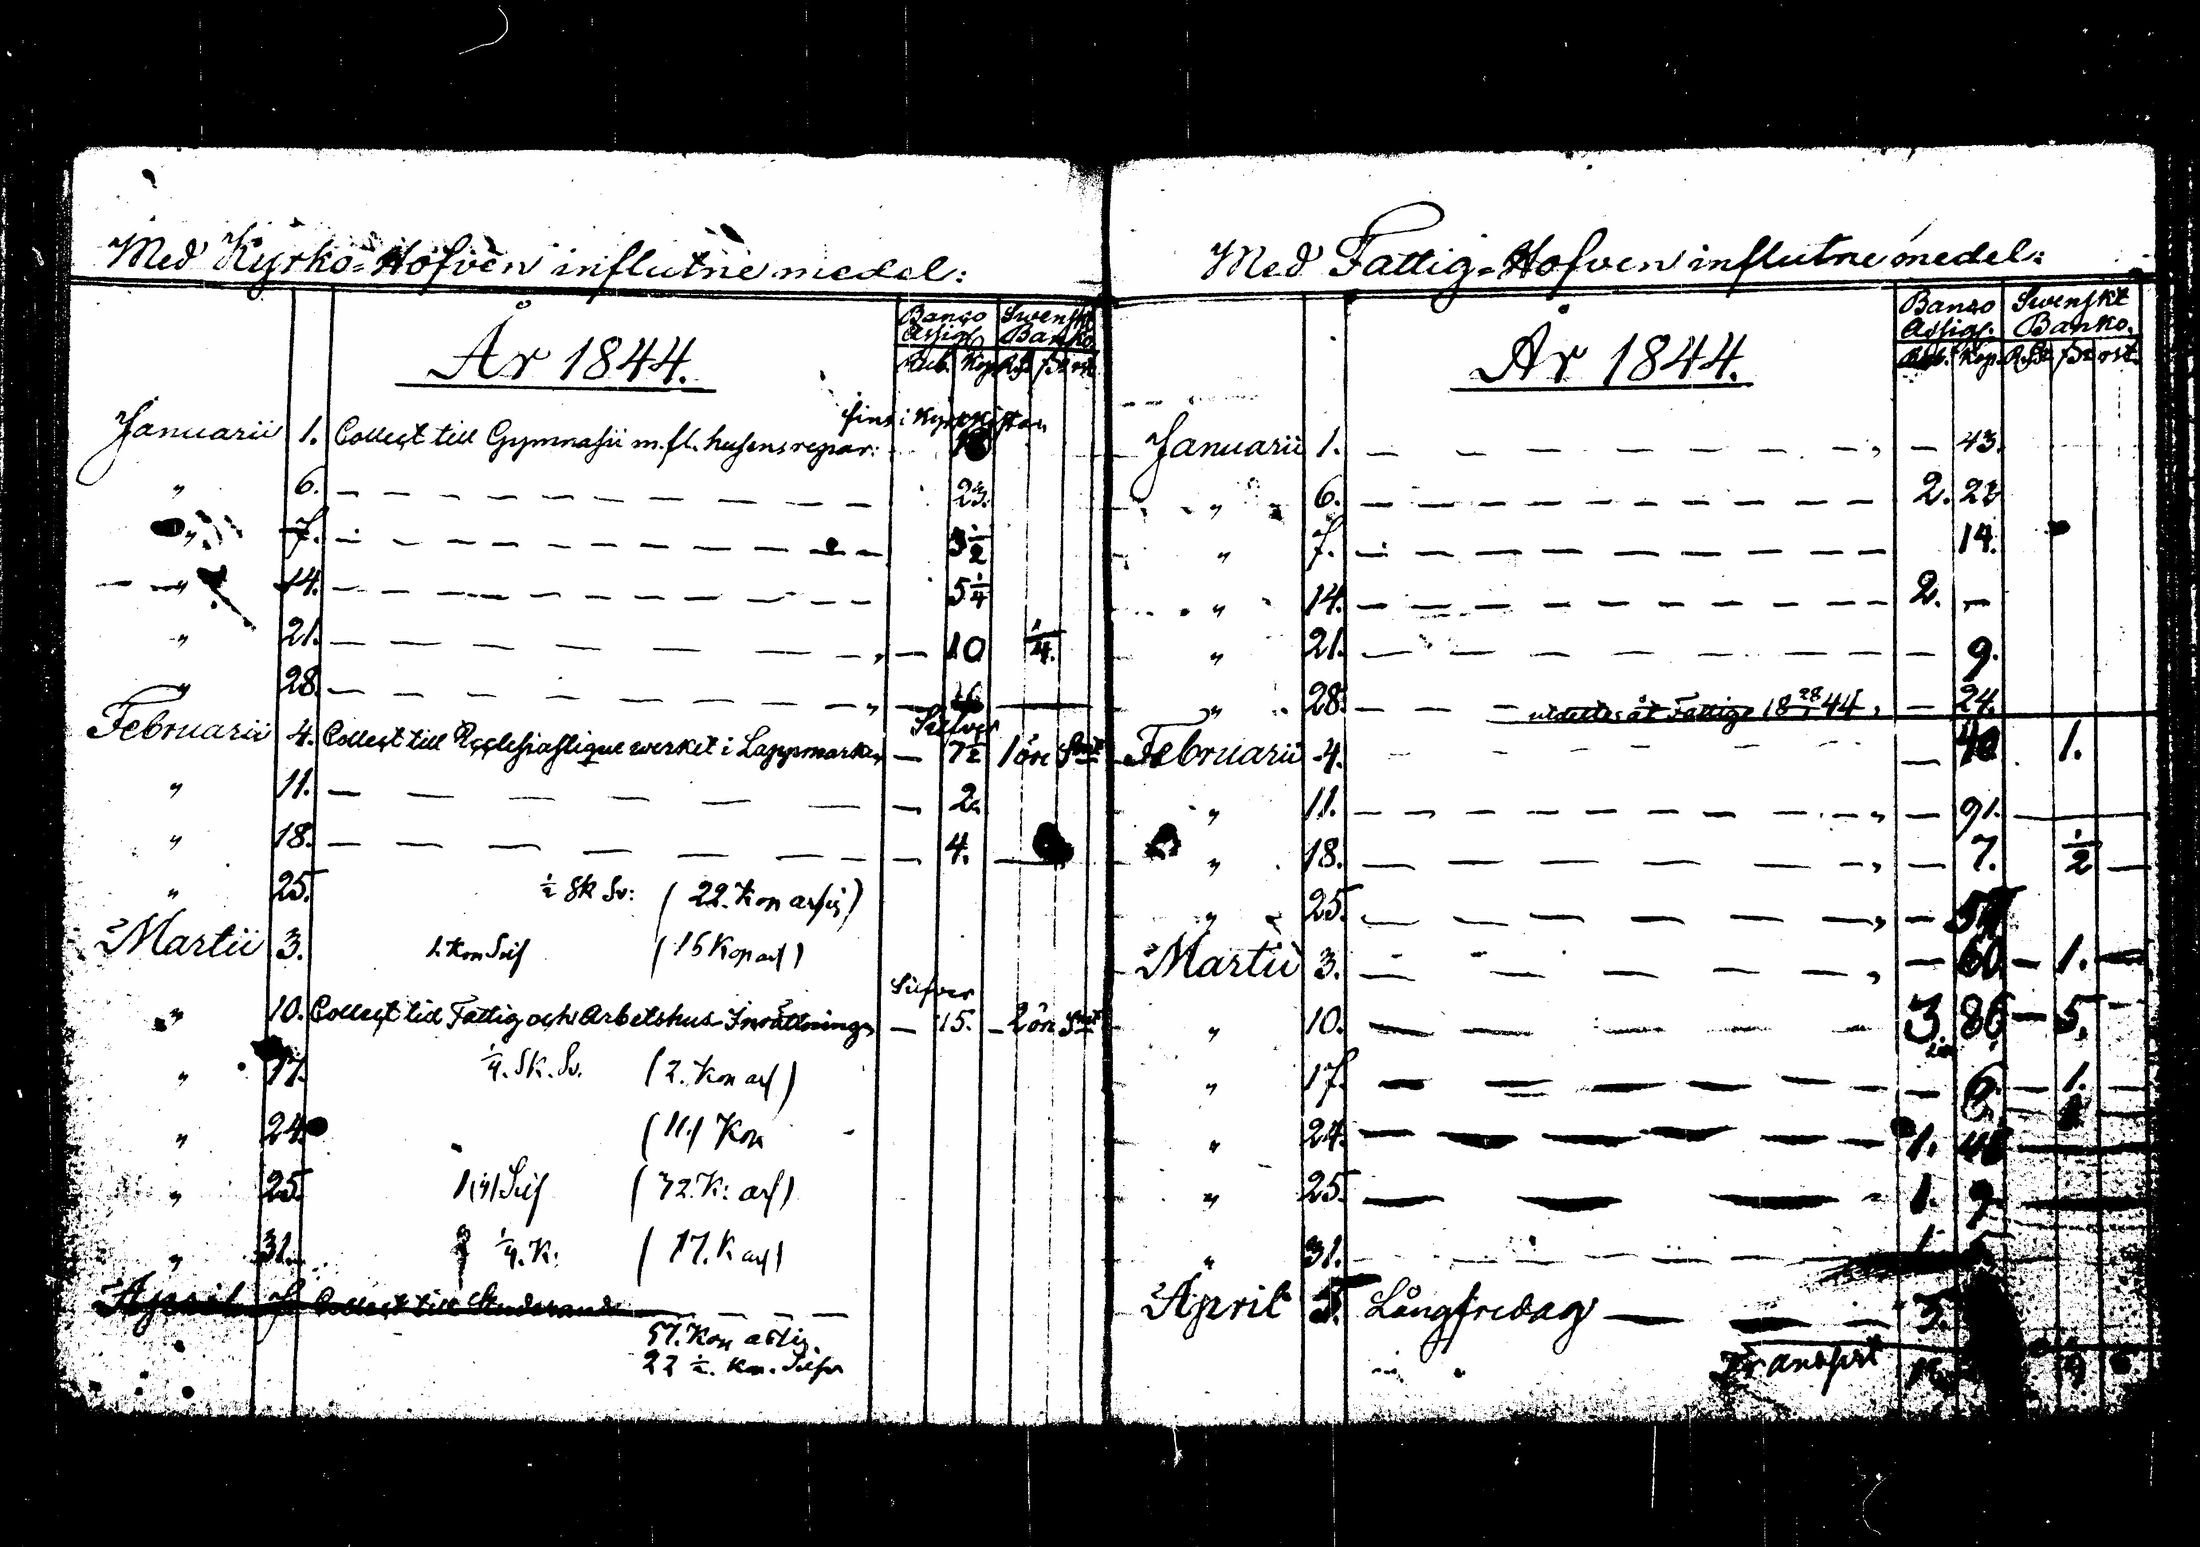 Med Kyrko-Hofven influtne medel:
Banco Assign. Swenskt Banko.
År 1844.
Rub. Kop. R.D. sk rst.
fins i Kyrkkistan
Januarii 1. Collect till Gymnasii m. fl. husens repar:
" 6. — 23.
" 7. — 3½
" 14. — 5¼
" 21. — 10 ¼.
" 28. —
Silfver
Februarii 4. Collect till Ecclesiastique werket i Lappmarken — 7½ 1 öre
" 11. — 2.
" 18. — 4.
" 25. ½ Sk Sv: (22. Kop assig)
Martii 3. 1. Kop Silf (15 Kop as)
Silfver
" 10. Collect till Fattig och Arbetshus Inrättning — 15. 2 öre
" 17. ¼. Sk. Sv. (2. Kop as)
" 24. (11) Kop
" 25. Silf (72. K: as)
" 31. ¼. K: (17. K as)
April 7 Collect till Studerande
57. Kop assig.
22 ½. Kop. Silfv
Med Fattig-Hofven influtne medel:
Banco Assign. Swenskt Banko.
År 1844.
Rub. Kop. R.D. sk rst.
Januarii 1. — 43.
" 6. — 2. 23
" 7. — 14.
" 14. — 2. —
" 21. — 9.
" 28. — utdeltes åt Fattige 18 28/1 44, — 24.
Februarii 4. — 40 1.
" 11. — 91.
" 18. — 7. ½
" 25. —
Martii 3. — 60 — 1.
" 10. — 3. 86 — 5.
" 17. — 6. — 1.
" 24. — 1.
" 25. — 1. 9
" 31. — 1.
April 5. Långfredag — 3.
Transport